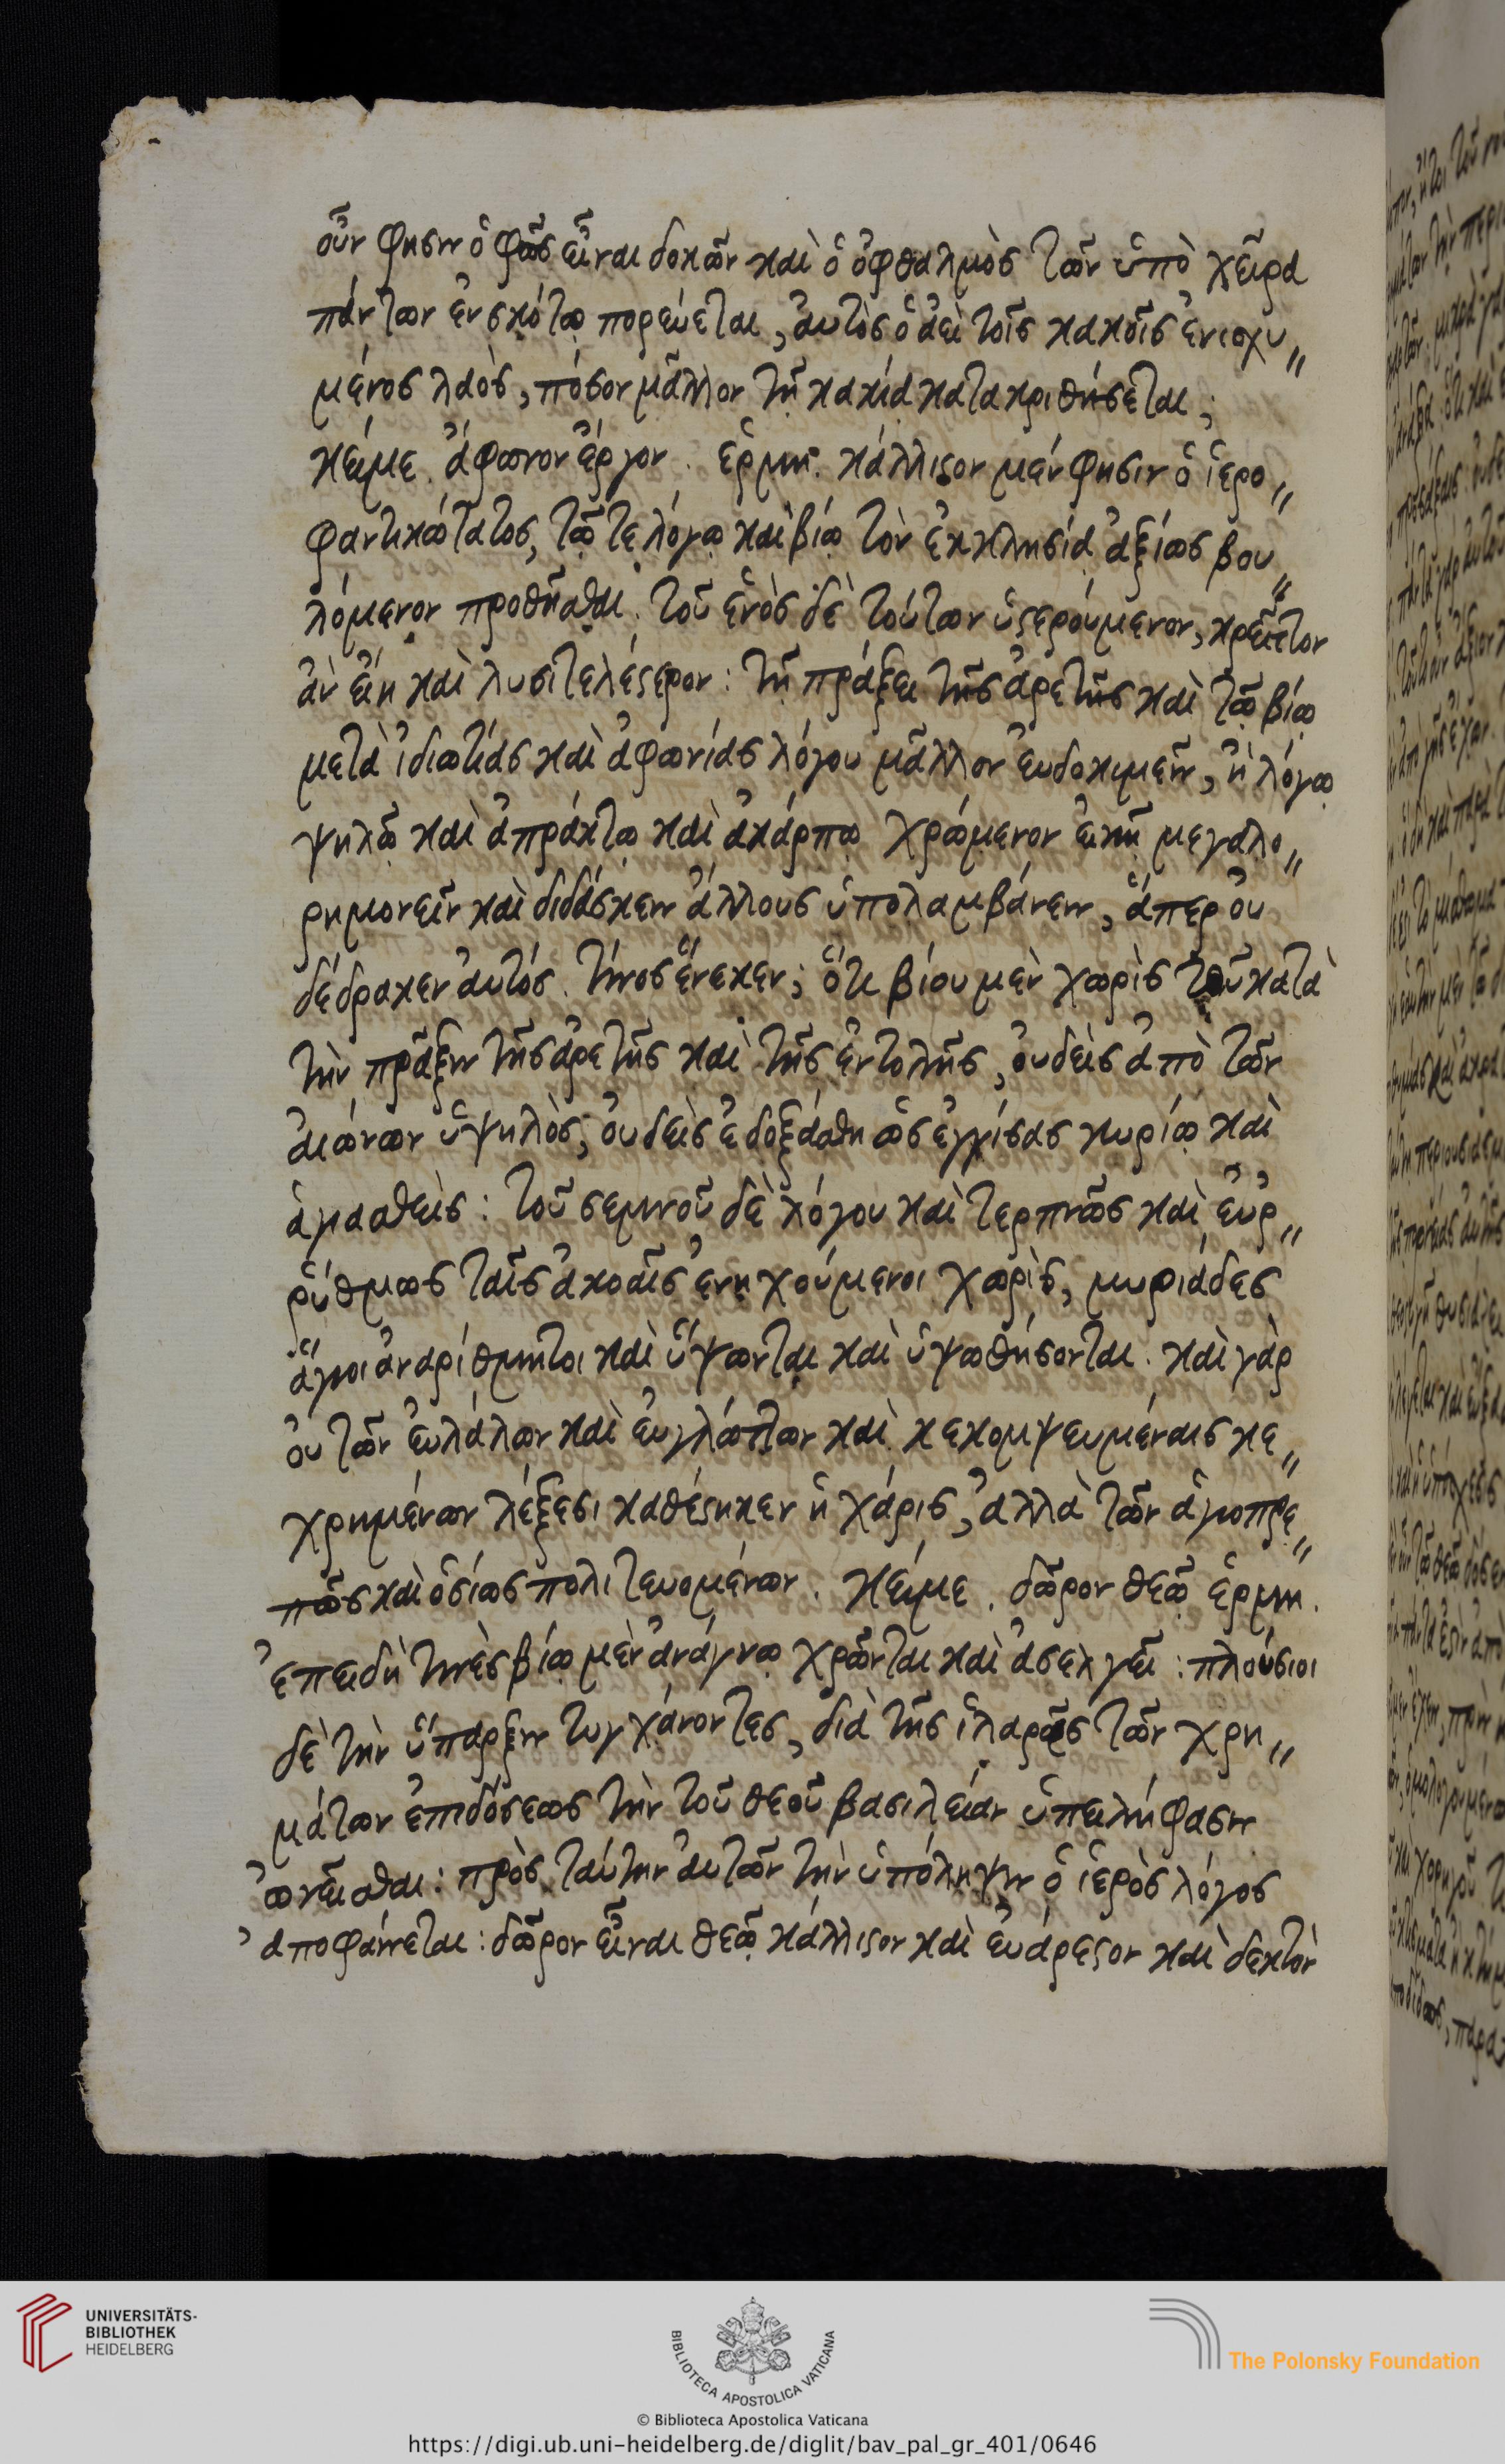 οὖν φησιν ὁ φῶς εἶναι δοκῶν καὶ ὁ ὀφθαλμὸς τῶν ὑπὸ χεῖρα
πάντων ἐν σκότῳ πορεύεται, ἀυτὸς ὁ ἀεὶ τοῖς κακοῖς ἐνισχυ„
μένος λαὸς, πόσον μᾶλλον τῇ κακίᾳ κατακριθήσεται;
κείμε. ἄφωνον ἔργον. ἑρμη. κάλλιστον μέν φησιν ὁ ἱερο„
φαντικώτατος, τῷ τε λόγῳ καὶ βίῳ τὸν ἐκκλησίᾳ ἀξίως βου„
λόμενον προθῆσθαι. τοῦ ἑνὸς δὲ τούτων ὑστερούμενον, κρεῖττον
ἀν εἴη καὶ λυσιτελέστερον: τῇ πράξει τῆς ἀρετῆς καὶ τῷ βίῳ
μετὰ ἰδιωτείας καὶ ἀφωνίας λόγου μᾶλλον ἐυδοκιμεῖν, ἢ λόγῳ
ψηλῷ καὶ ἀπράκτῳ καὶ ἀκάρπῳ χρώμενον εἰκῇ μεγαλο„
ρημονεῖν καὶ διδάσκειν ἄλλους ὑπολαμβάνειν, ἅπερ ὀυ
δέδρακεν ἀυτός. τίνος ἕνεκεν; ὅτι βίου μὲν χωρὶς τοῦ κατὰ
τὴν πρᾶξιν τῆς ἀρετῆς καὶ τῆς ἐντολῆς, ὀυδεὶς ἀπὸ τῶν
ἀιώνων ὑψηλὸς, ὀυδεὶς ἐδοξάσθη ὡς ἐγγίσας κυρίῳ καὶ
ἁγιασθεὶς: τοῦ σεμνοῦ δὲ λόγου καὶ τερπνῶς καὶ ἐυρ„
ρύθμως ταῖς ἀκοαῖς ἐνηχούμενοι χωρὶς, μυριάδες
ἅγιοι ἀναρίθμητοι καὶ ὕψωνται καὶ ὑψωθήσονται. καὶ γὰρ
ὀυ τῶν ἐυλάλων καὶ ἐυγλώττων καὶ κεκομψευμέναις κε„
χρημένων λέξεσι καθέστηκεν ἡ χάρις, ἀλλὰ τῶν ἁγιοπρε„
πῶς καὶ ὁσίως πολιτευομένων. κείμε. δῶρον θεῷ ἑρμη.
ἐπειδὴ τινὲς βίῳ μὲν ἀνάγνῳ χρῶνται καὶ ἀσελγεῖ: πλούσιοι
δὲ τὴν ὕπαρξιν τυγχάνοντες, διὰ τῆς ἱλαρᾶς τῶν χρη„
μάτων ἐπιδόσεως τὴν τοῦ θεοῦ βασιλείαν ὑπειλήφασιν
ὠνεῖσθαι: πρὸς ταύτην ἀυτῶν τὴν ὑπόληψιν ὁ ἱερὸς λόγος
ἀποφαίνεται: δῶρον εἶναι θεῷ κάλλιστον καὶ ἐυάρεστον καὶ δεκτὸν
UNIVERSITÄTS-
BIBLIOTHEK
HEIDELBERG
BIBLIOTECA APOSTOLICA VATICANA
The Polonsky Foundation
© Biblioteca Apostolica Vaticana
https://digi.ub.uni-heidelberg.de/diglit/bav_pal_gr_401/0646